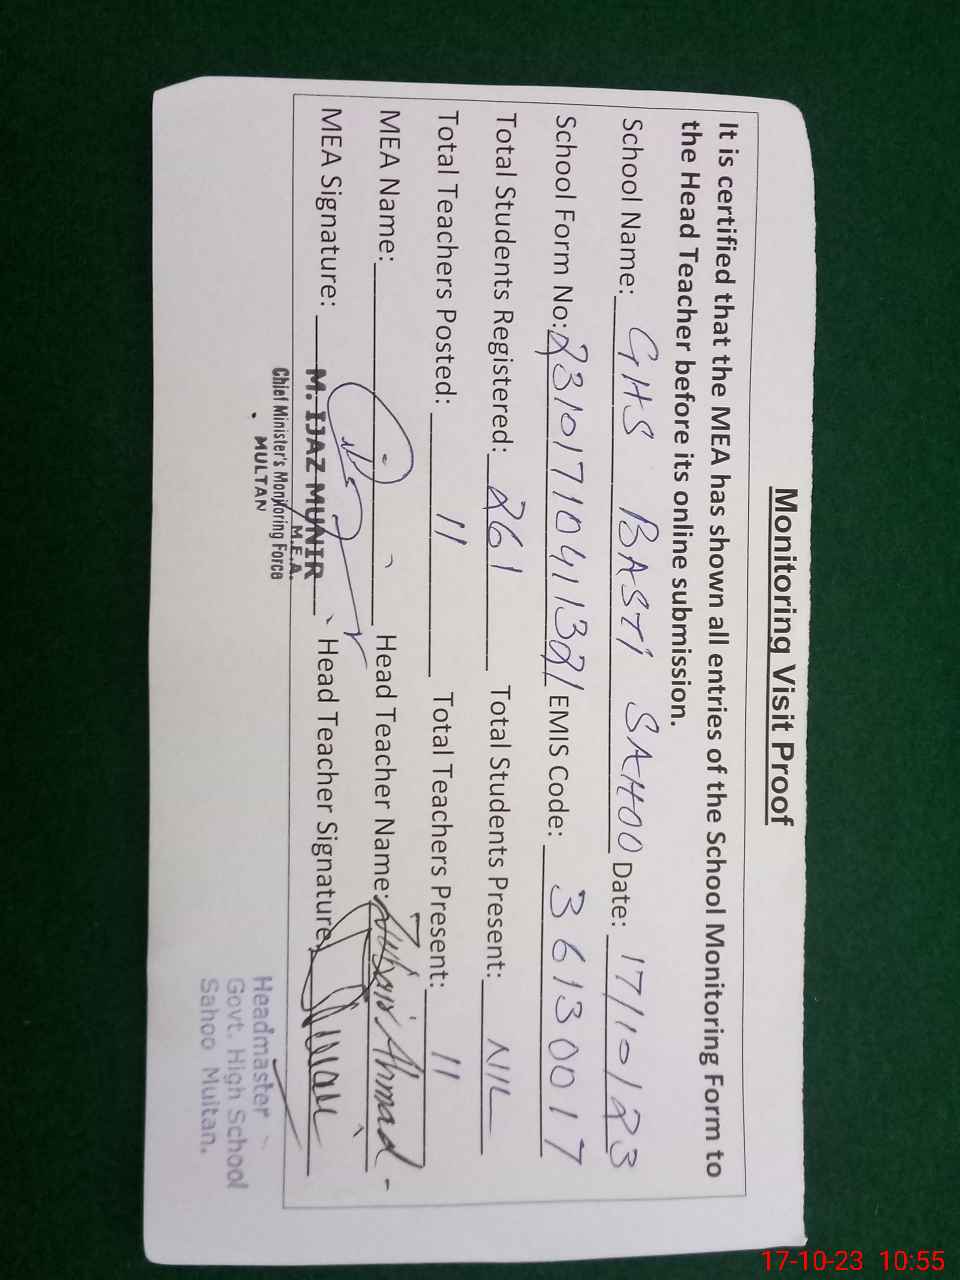 Monitoring Visit Proof
It is certified that the MEA has shown all entries of the School Monitoring Form to
the Head Teacher before its online submission.
School Name: GHS BASTI SAHOO Date: 17/10/23
School Form No: 2310171041132/ EMIS Code: 36130017
Total Students Registered: 261 Total Students Present: NIL
Total Teachers Posted: 11 Total Teachers Present: 11
MEA Name: Head Teacher Name: Zubair Ahmad
MEA Signature: Head Teacher Signature:
M. IJAZ MUNIR
M.E.A.
Chief Minister's Monitoring Force
MULTAN
Headmaster
Govt. High School
Sahoo Multan.
17-10-23 10:55